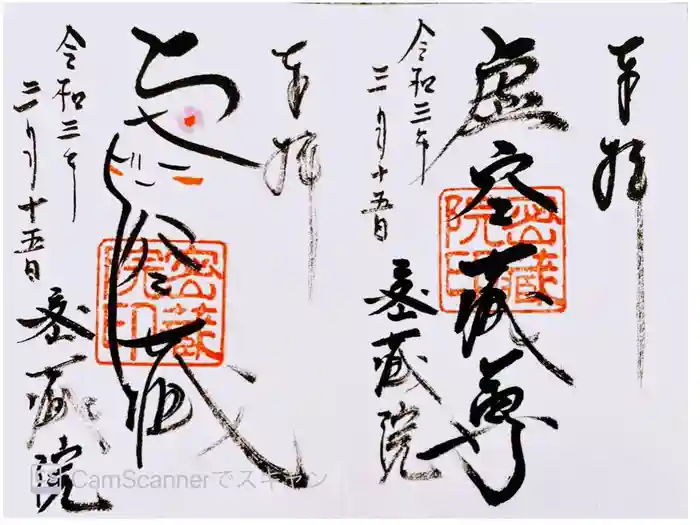 奉拝
虚空蔵尊
密蔵院印
令和三年
三月十五日
密蔵院
奉拝
虚空蔵
密蔵院印
令和三年
三月十五日
密蔵院
CamScannerでスキャン